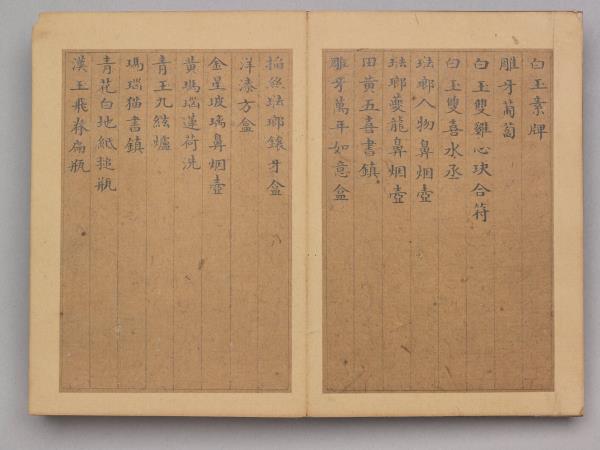 白玉素牌
雕牙葡萄
白玉雙雞心玦合符
白玉雙喜水丞
琺瑯人物鼻烟壺
琺瑯夔龍鼻烟壺
田黃五喜書鎮
雕牙萬年如意盒
掐絲琺瑯鑲牙盒
洋漆方盒
金星玻璃鼻烟壺
黃瑪瑙蓮荷洗
青玉九絃爐
瑪瑙猫書鎮
青花白地紙搥瓶
漢玉飛脊扁瓶